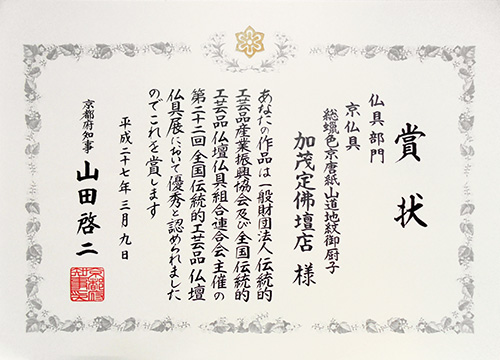 賞状
仏具部門
京仏具
総蝋色京唐紙山道地紋御厨子
加茂定佛壇店 様
あなたの作品は一般財団法人伝統的
工芸品産業振興協会及び全国伝統的
工芸品仏壇仏具組合連合会主催の
第二十二回全国伝統的工芸品仏壇
仏具展において優秀と認められました
のでこれを賞します
平成二十七年三月九日
京都府知事 山田啓二